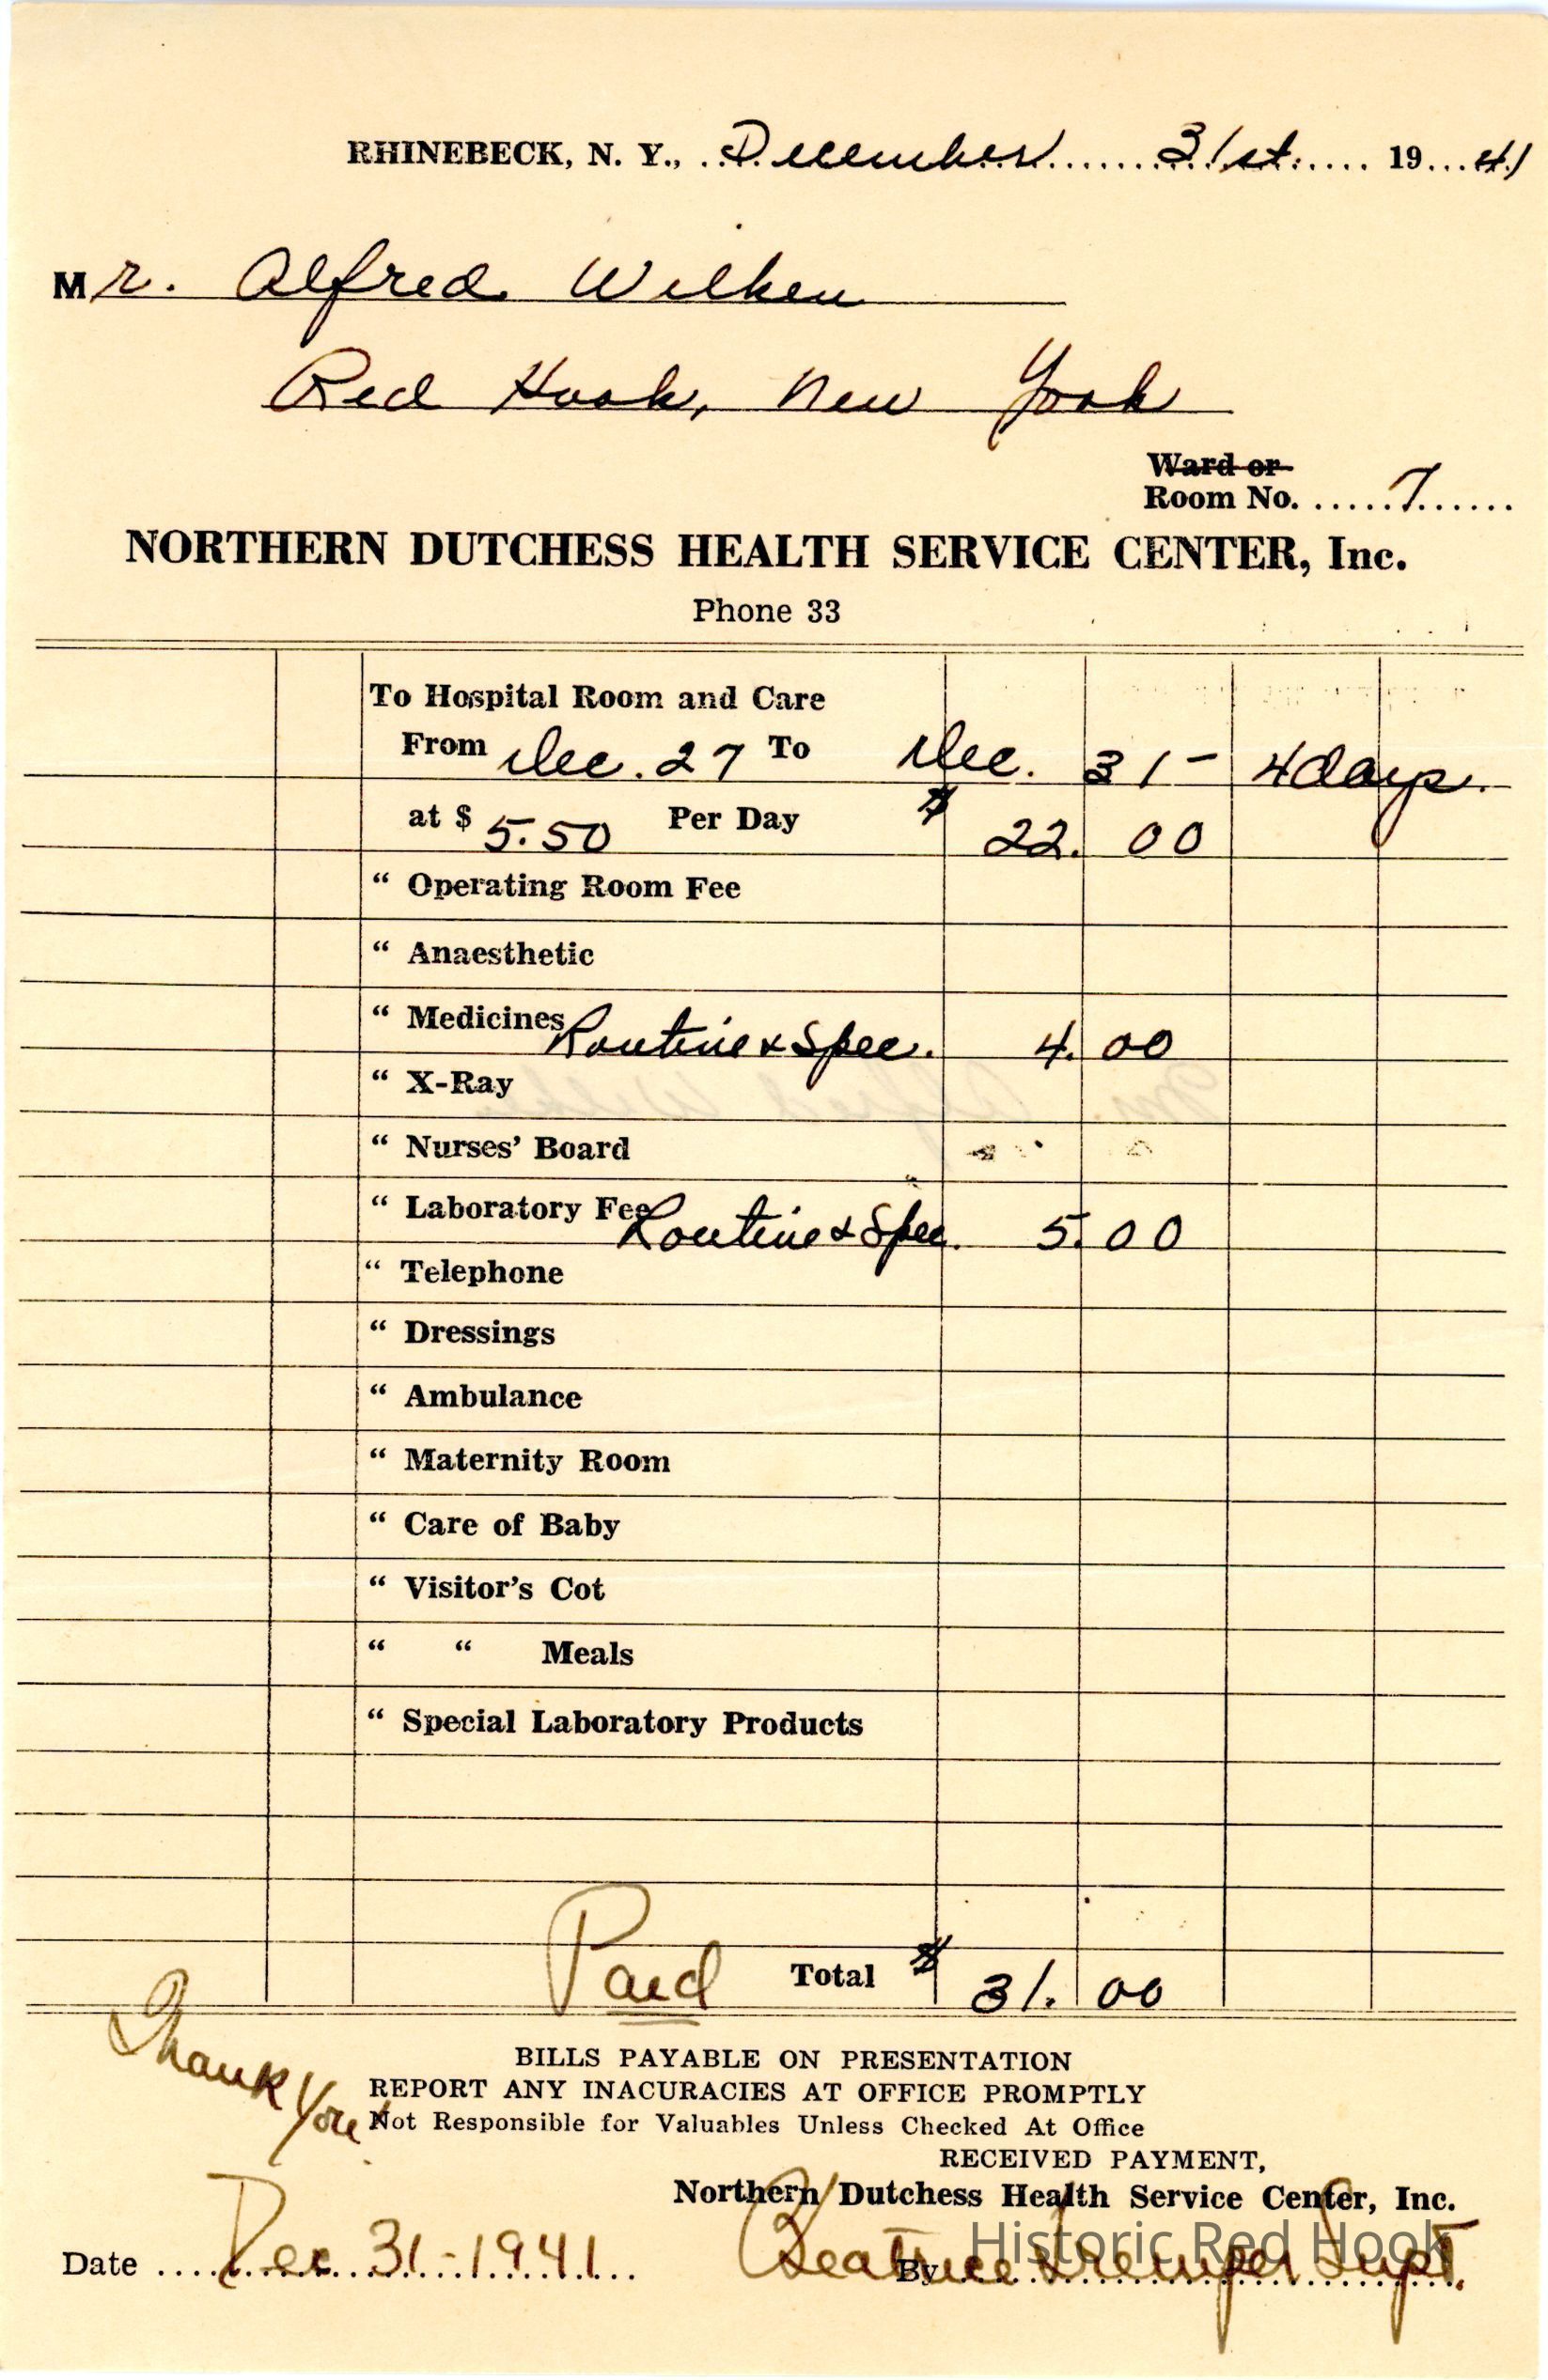 RHINEBECK, N. Y., December 31st. 1941
Mr. Alfred Wilken
Red Hook, New York
Ward or
Room No. 7
NORTHERN DUTCHESS HEALTH SERVICE CENTER, Inc.
Phone 33
To Hospital Room and Care
From Dec. 27 To Dec. 31 - 4 days.
at $ 5.50 Per Day $ 22. 00
“ Operating Room Fee
“ Anaesthetic
“ Medicines Routine & Spec. 4. 00
“ X-Ray
“ Nurses’ Board
“ Laboratory Fee Routine & Spec. 5. 00
“ Telephone
“ Dressings
“ Ambulance
“ Maternity Room
“ Care of Baby
“ Visitor’s Cot
“ “ Meals
“ Special Laboratory Products
Paid Total $ 31. 00
Thank You
BILLS PAYABLE ON PRESENTATION
REPORT ANY INACURACIES AT OFFICE PROMPTLY
Not Responsible for Valuables Unless Checked At Office
RECEIVED PAYMENT,
Northern Dutchess Health Service Center, Inc.
Historic Red Hook
Date Dec. 31-1941. By Beatrice Tremper Supt.